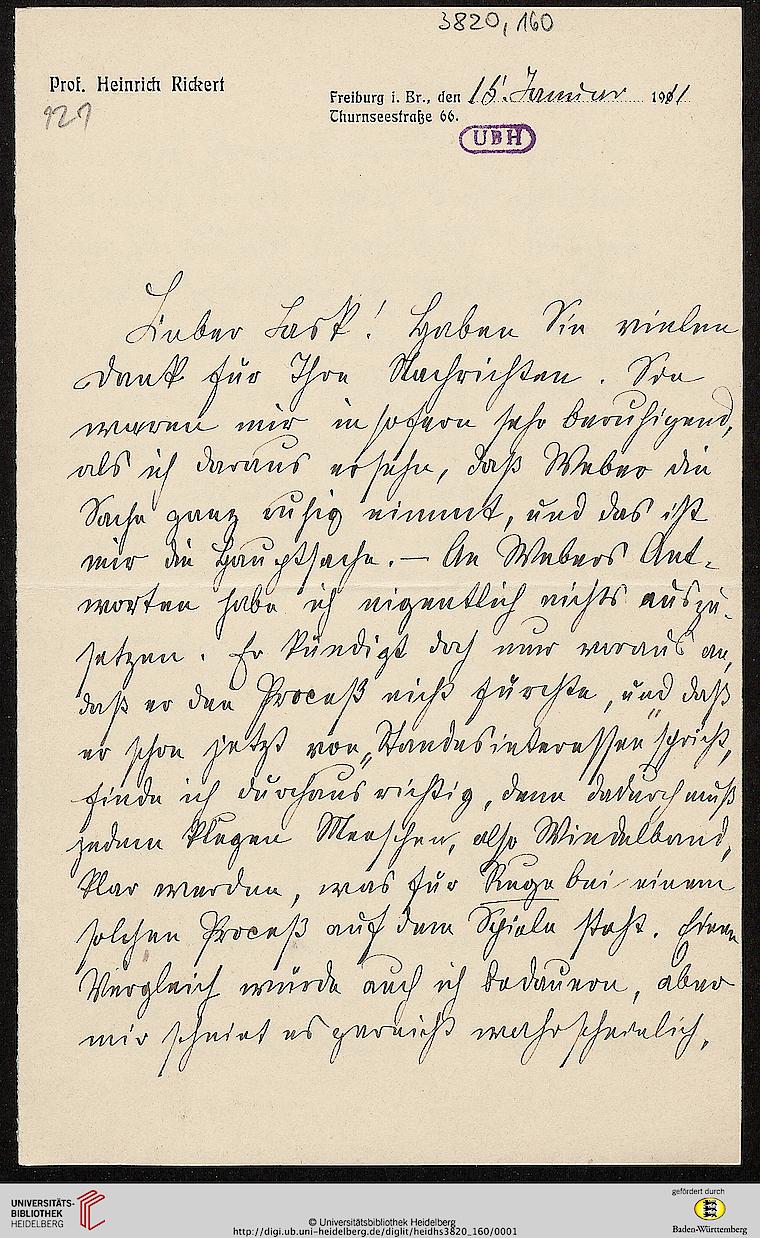 3820, 160
Prof. Heinrich Rickert
121
Freiburg i. Br., den 15. Januar 1911
Thurnseestraße 66.
UBH
Lieber Lask! Haben Sie vielen
Dank für Ihre Nachrichten. Sie
waren mir in sofern sehr beruhigend,
als ich daraus ersehe, daß Weber die
Sache ganz ruhig nimmt, und das ist
mir die Hauptsache. — An Webers Ant-
worten habe ich eigentlich nichts auszu-
setzen. Er kündigt doch nur voraus an,
daß er den Proceß nicht fürchte, und daß
er schon jetzt von „Standesinteressen“ spricht,
finde ich durchaus richtig, denn dadurch muß
jedem klugen Menschen, also Windelband,
klar werden, was für Ruge bei einem
solchen Proceß auf dem Spiele steht. Einen
Vergleich würde auch ich bedauern, aber
mir scheint es garnicht wahrscheinlich,
UNIVERSITÄTS-
BIBLIOTHEK
HEIDELBERG
© Universitätsbibliothek Heidelberg
http://digi.ub.uni-heidelberg.de/diglit/heidhs3820_160/0001
gefördert durch
Baden-Württemberg